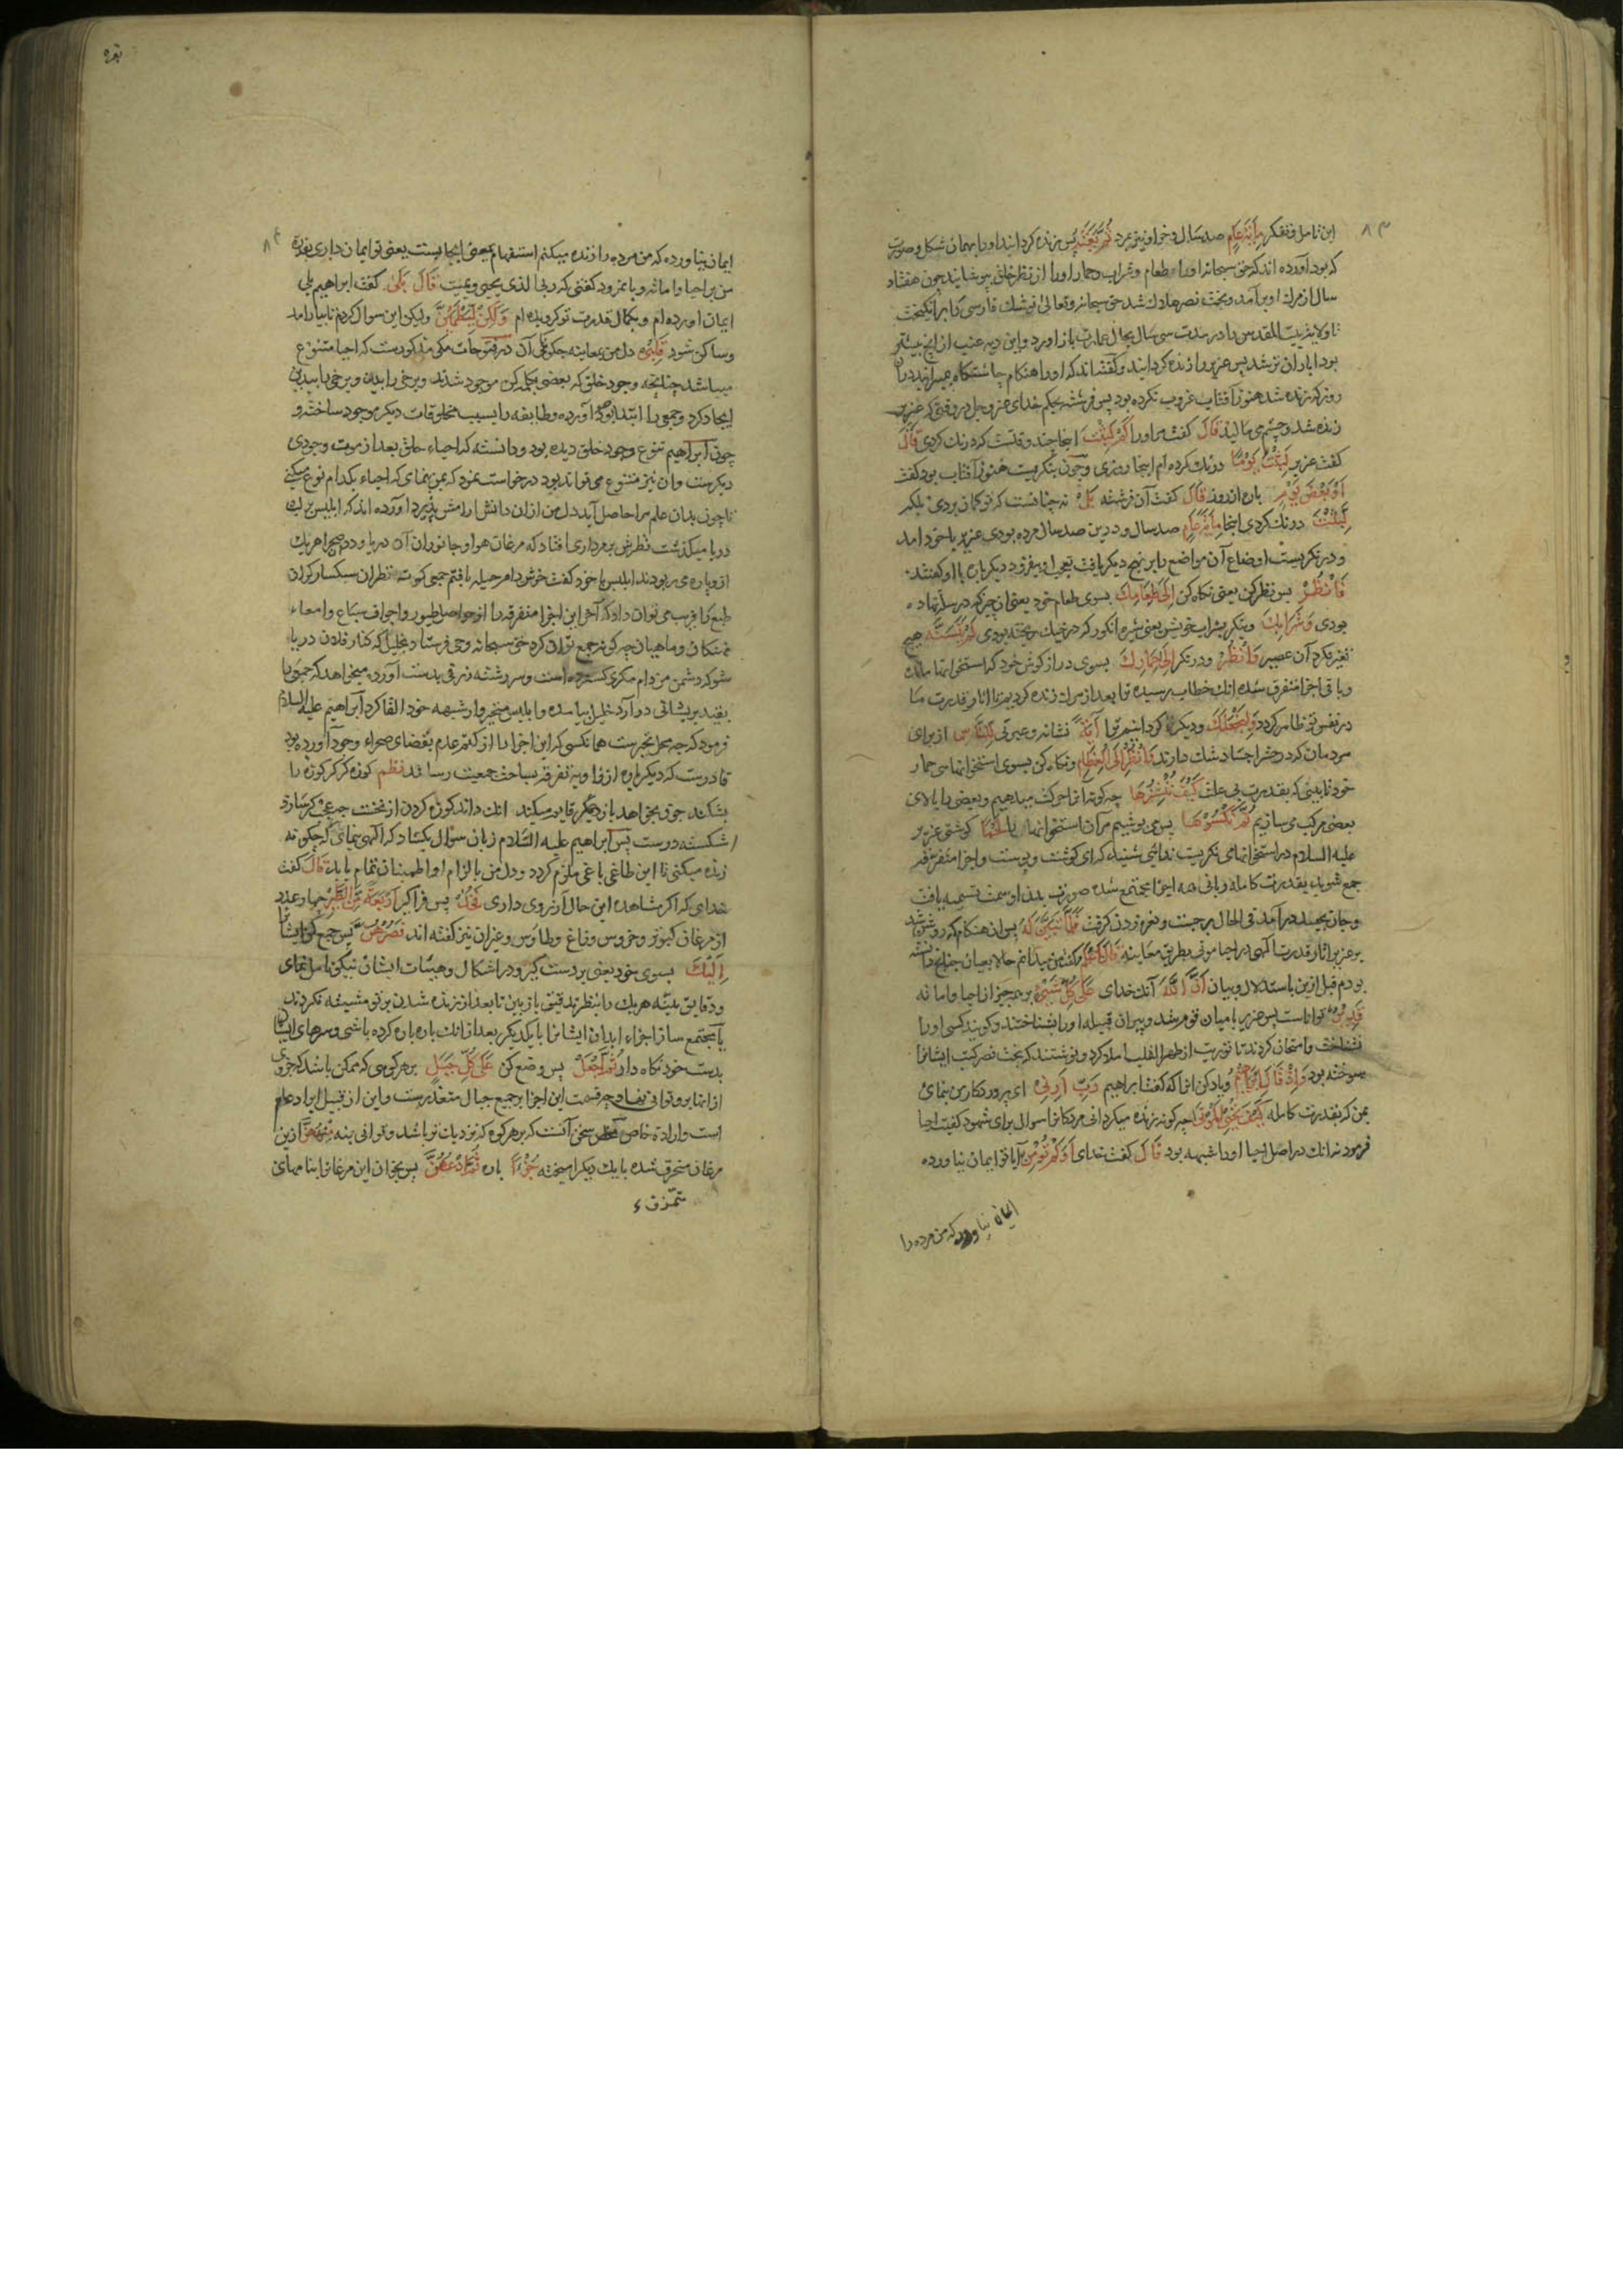 ۸۳
این تامل و تفکر مِأَةَ عَامٍ صد سال و خر او نیز بمرد ثُمَّ بَعَثَهُ پس زنده کردانید او را بهمان شکل و صورت
که بود آورده اند که حق سبحانه او را و طعام و شراب و حمار او را از نظر خلق بپوشانید چون هفتاد
سال از مرك او برآمد و بخت نصر هلاك شد حق سبحانه و تعالی نوشك فارسی را برانکیخت
تا ولایت بیت المقدس را در مدت سی سال بحال عمارت باز اورد و این دیه عنب از انچ پیشتر
بود ابادان تر شد پس عزیر را زنده کردانید و کفته اند که او را هنکام چاشتکاه میرانید در ان
روز که زنده شد هنوز آفتاب غروب نکرده بود پس فرشته بحکم خدای عز و جل در وقتی که عزیر
زنده شد و چشم می مالید قَالَ کفت مر او را كَمْ لَبِثْتَ اینجا چند وقتست که درنك کردی قَالَ
کفت عزیر لَبِثْتُ يَوْمًا درنك کرده ام اینجا روزی و چون بنکریست هنوز آفتاب بود کفت
أَوْ بَعْضَ يَوْمٍ پاره از روز قَالَ کفت آن فرشته بَلْ نه چنانست که تو کمان بردی بلکه
لَبِثْتَ درنك کردی اینجا مِأَةَ عَامٍ صد سال و درین صد سال مرده بودی عزیر با خود امد
و در نکریست اوضاع آن مواضع را بر نهج دیکر یافت تعجب او بیفزود دیکر باره با او کفتند
فَانْظُرْ پس نظر کن یعنی نکاه کن إِلَى طَعَامِكَ بسوی طعام خود یعنی انجیر که در سله نهاده
بودی وَشَرَابِكَ و بنکر بشراب خویش یعنی شیره انکور که در خیك ریخته بودی لَمْ يَتَسَنَّهْ هیچ
تغیر نکرد آن عصیر وَانْظُرْ و در نکر إِلَى حِمَارِكَ بسوی دراز کوش خود که استخوانها مانده
و باقی اجزا متفرق شده انك خطاب رسیده تو را بعد از مرك زنده کردیم تا اثار قدرت ما
در نفس تو ظاهر کردد وَلِنَجْعَلَكَ و دیکر کردانیم تو را آيَةً نشانه و عبرتی لِلنَّاسِ از برای
مردمان که در حشر اجساد شك دارند وَانْظُرْ إِلَى الْعِظَامِ و نکاه کن بسوی استخوانهای حمار
خود تا ببینی که بقدرت بی علت كَيْفَ نُنْشِزُهَا چه کونه انرا حرکت میدهیم و بعضی را بالای
بعضی مرکب می سازیم ثُمَّ نَكْسُوهَا پس می پوشیم مر آن استخوانهارا لَحْمًا کوشتی عزیر
علیه السلام در استخوانها می نکریست ندایی شنید که ای کوشت و پوست و اجزا متفرقه
جمع شوید بقدرت کامله ربانی همه اجزا مجتمع شده صورت بدن او سمت تسمیه یافت
و جان بجسد درآمد فی الحال برجست و نعره زدن کرفت فَلَمَّا تَبَيَّنَ لَهُ پس ان هنکام که روشن شد
بر عزیر اثار قدرت الهی در احیا موتی بطریق معاینه قَالَ أَعْلَمُ کفت من میدانم حالا بعیان چنانچه دانسته
بودم قبل ازین باستدلال و بیان أَنَّ اللّٰهَ آنك خدای عَلَى كُلِّ شَيْءٍ بر همه چیز از احیا و اماته
قَدِيرٌ توانا است پس عزیر با میان قوم شد و پیران قبیله او را بشناختند و کویند کسی او را
نشناخت و امتحان کردند تا توریت از ظهر القلب املا کرد و نوشتند که بخت نصر کتب ایشانرا
سوخته بود وَإِذْ قَالَ إِبْرَاهِيمُ و یاد کن انرا که کفت ابراهیم رَبِّ أَرِنِي ای پروردکار من بنمای
بمن که بقدرت کامله كَيْفَ تُحْيِي الْمَوْتَى چه کونه زنده میکردانی مردکانرا سوال برای شهود کیفیت احیا
فرمود نه انك در اصل احیا او را شبهه بود قَالَ کفت خدای أَوَلَمْ تُؤْمِنْ آیا تو ایمان نیاورده
ایمان نیاورده که من مرده را
بقره
۸۴
ایمان نیاورده که من مرده را زنده میکنم استفهام بمعنی ایجابیست یعنی تو ایمان داری بقدرة
من بر احیا و اماته و با نمرود کفتی که ربی الذی یحیی و یمیت قَالَ بَلَى کفت ابراهیم بلی
ایمان اورده ام و بکمال قدرت تو کرویده ام وَلَكِنْ لِيَطْمَئِنَّ ولیکن این سوال کردم تا بیارامد
و ساکن شود قَلْبِي دل من بمعاینه چکونکی آن در فتوحات مکی مذکورست که احیا متنوع
میباشد چنانچه وجود خلق که بعضی بکلمه کن موجود شدند و برخی را بید و برخی را بیدین
ایجاد کرد و جمعی را ابتدا بوجود آورده و طایفه را بسبب مخلوقات دیکر موجود ساخته و
چون ابراهیم تنوع وجود خلق دیده بود و دانسته که احیاء خلق بعد از موت وجودی
دیکرست و ان نیز متنوع می تواند بود درخواست نمود که بمن بنمای که احیاء بکدام نوع میکنی
تا چون بدان علم مرا حاصل آید دل من از ان دانش ارامش پذیرد آورده اند که ابلیس بر لب
دریا میکذشت نظرش بر مرداری افتاد که مرغان هوا و جانوران آن دریا و دد صحرا هر یك
از و پاره می ربودند ابلیس با خود کفت خوش دام حیله یافتم جمعی کوته نظران سبکسار کران
طبع را فریب می توان داد که آخر این اجزا متفرقه را از حواصل طیور و اجواف سباع و امعاء
نهنکان و ماهیان چه کونه جمع توان کرد حق سبحانه وحی فرستاد بخلیل که کنار فلان دریا
شو که دشمن من دام مکری کسترده است و سر رشته زرقی بدست آورد میخواهد که جمعی را
بقید پریشانی درآرد خلیل بیامد و ابلیس متحیر وار شبهه خود القا کرد ابراهیم علیه السلام
فرمود که چه محل تحیرست همانکسی که این اجزا را از کتم عدم بفضای صحراء وجود آورده بود
قادرست که دیکر باره از زاویه تفرقه بساحت جمعیت رساند نظم کوزه کر کر کوزه را
بشکند چون بخواهد باز دیکر قایم میکند انك داند کوزه کردن از نخست چه عجب کر سازد
اشکسته درست پس ابراهیم علیه السلام زبان سؤال بکشاد که الهی بنمای که چکونه
زنده میکنی تا این طاغی باغی ملزم کردد و دل من بالزام او اطمینان تمام یابد قَالَ کفت
خدای که اکر مشاهده این حال آرزوی داری فَخُذْ پس فرا کیر أَرْبَعَةً مِنَ الطَّيْرِ چهار عدد
از مرغان کبوتر و خروس و زاغ و طاوس و غیر ان نیز کفته اند فَصُرْهُنَّ پس جمع کن ایشانرا
إِلَيْكَ بسوی خود یعنی بر دست کیر و در اشکال و هیئات ایشان نیکو تامل نمای
و دقایق بنیه هر یك را بنظر تدقیق باز بین تا بعد از زنده شدن بر تو مشتبه نکردند
یا مجتمع ساز اجزاء ابدان ایشانرا با یکدیکر بعد از انك پاره پاره کرده باشی و سرهای ایشانرا
بدست خود نکاه دار ثُمَّ اجْعَلْ پس وضع کن عَلَى كُلِّ جَبَلٍ بر هر کوهی که ممکن باشد که جزوی
از انها برو توانی نهاد چه قسمت این اجزا بر جمیع جبال متعذرست و این از قبیل ایراد عام
است و ارادة خاص سخن آنست که بر هر کوه که نزدیك تو باشد و توانی بنه مِنْهُنَّ ازین
مرغان متمزق شده با یك دیکر امیخته جُزْءًا پاره ثُمَّ ادْعُهُنَّ پس بخوان این مرغانرا بنامهای
متمزق